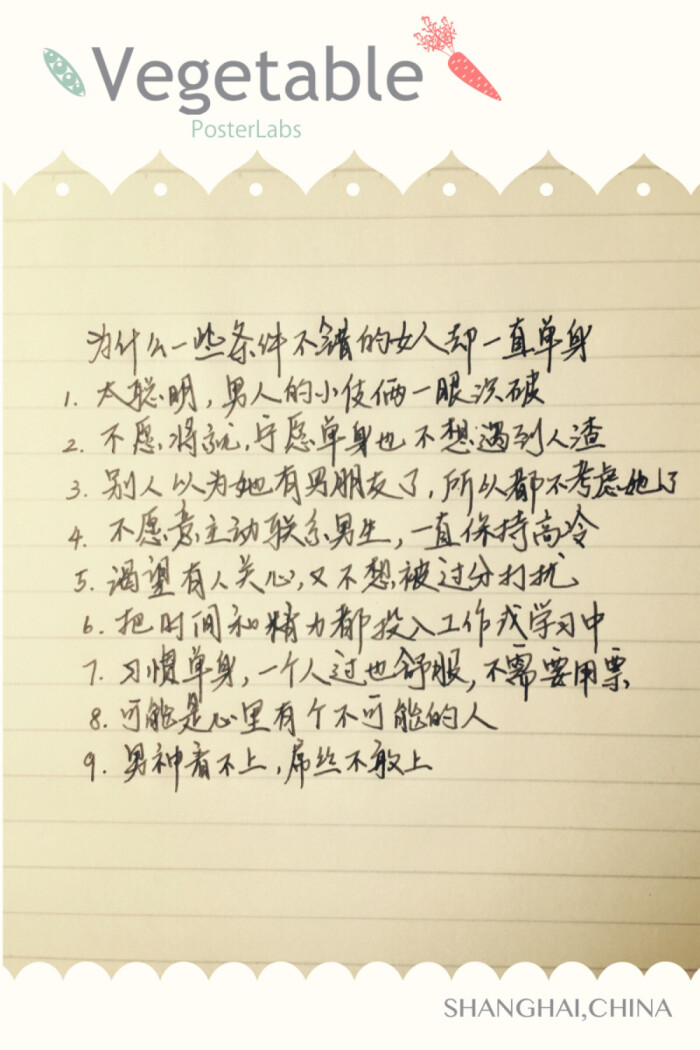 Vegetable
PosterLabs
为什么一些条件不错的女人却一直单身
1. 太聪明,男人的小伎俩一眼识破
2. 不愿将就,宁愿单身也不想遇到人渣
3. 别人以为她有男朋友了,所以都不考虑她了
4. 不愿意主动联系男生,一直保持高冷
5. 渴望有人关心,又不想被过分打扰
6. 把时间和精力都投入工作或学习中
7. 习惯单身,一个人过也舒服,不需要用票
8. 可能是心里有个不可能的人
9. 男神看不上,屌丝不敢上
SHANGHAI,CHINA